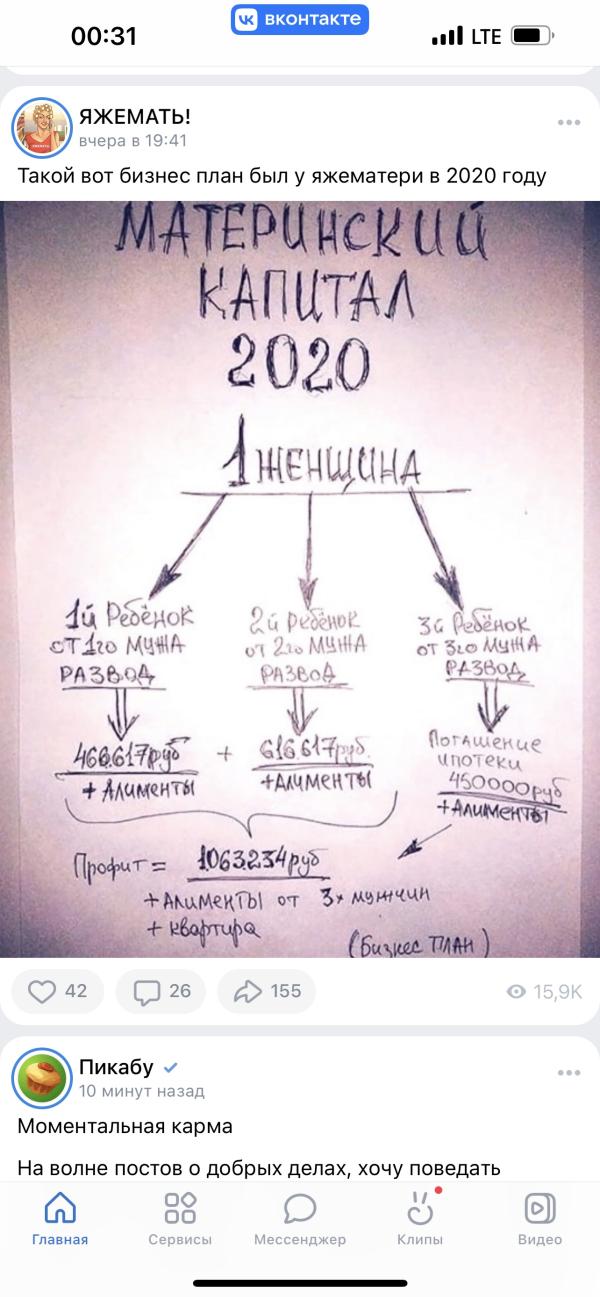 00:31
вконтакте
LTE
ЯЖЕМАТЬ!
вчера в 19:41
Такой вот бизнес план был у яжематери в 2020 году
МАТЕРИНСКИЙ
КАПИТАЛ
2020
1 ЖЕНЩИНА
1й Ребёнок
от 1го МУЖА
РАЗВОД
466.617 руб
+ Алименты
+
2й Ребёнок
от 2го МУЖА
РАЗВОД
616 617 руб.
+Алименты
3й Ребёнок
от 3го МУЖА
РАЗВОД
Погашение
ипотеки
450000 руб
+Алименты
Профит = 1.063.234 руб
+Алименты от 3х мужчин
+ квартира
(Бизнес ПЛАН)
42
26
155
15,9K
Пикабу
10 минут назад
Моментальная карма
На волне постов о добрых делах, хочу поведать
Главная
Сервисы
Мессенджер
Клипы
Видео